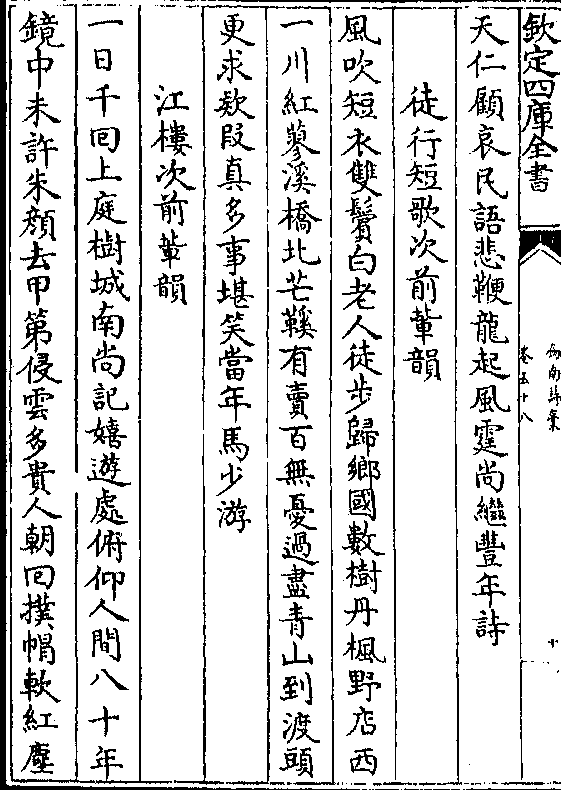 欽定四庫全書
劒南詩藁
卷五十八
十
天仁顧哀民語悲鞭龍起風霆尚繼豐年詩
徒行短歌次前輩韻
風吹短衣雙鬢白老人徒步歸鄉國數樹丹楓野店西
一川紅蓼溪橋北芒鞵有賣百無憂過盡青山到渡頭
更求欵段真多事堪笑當年馬少游
江樓次前輩韻
一日千囘上庭樹城南尚記嬉遊處俯仰人間八十年
鏡中未許朱顔去甲第侵雲多貴人朝回撲帽軟紅塵